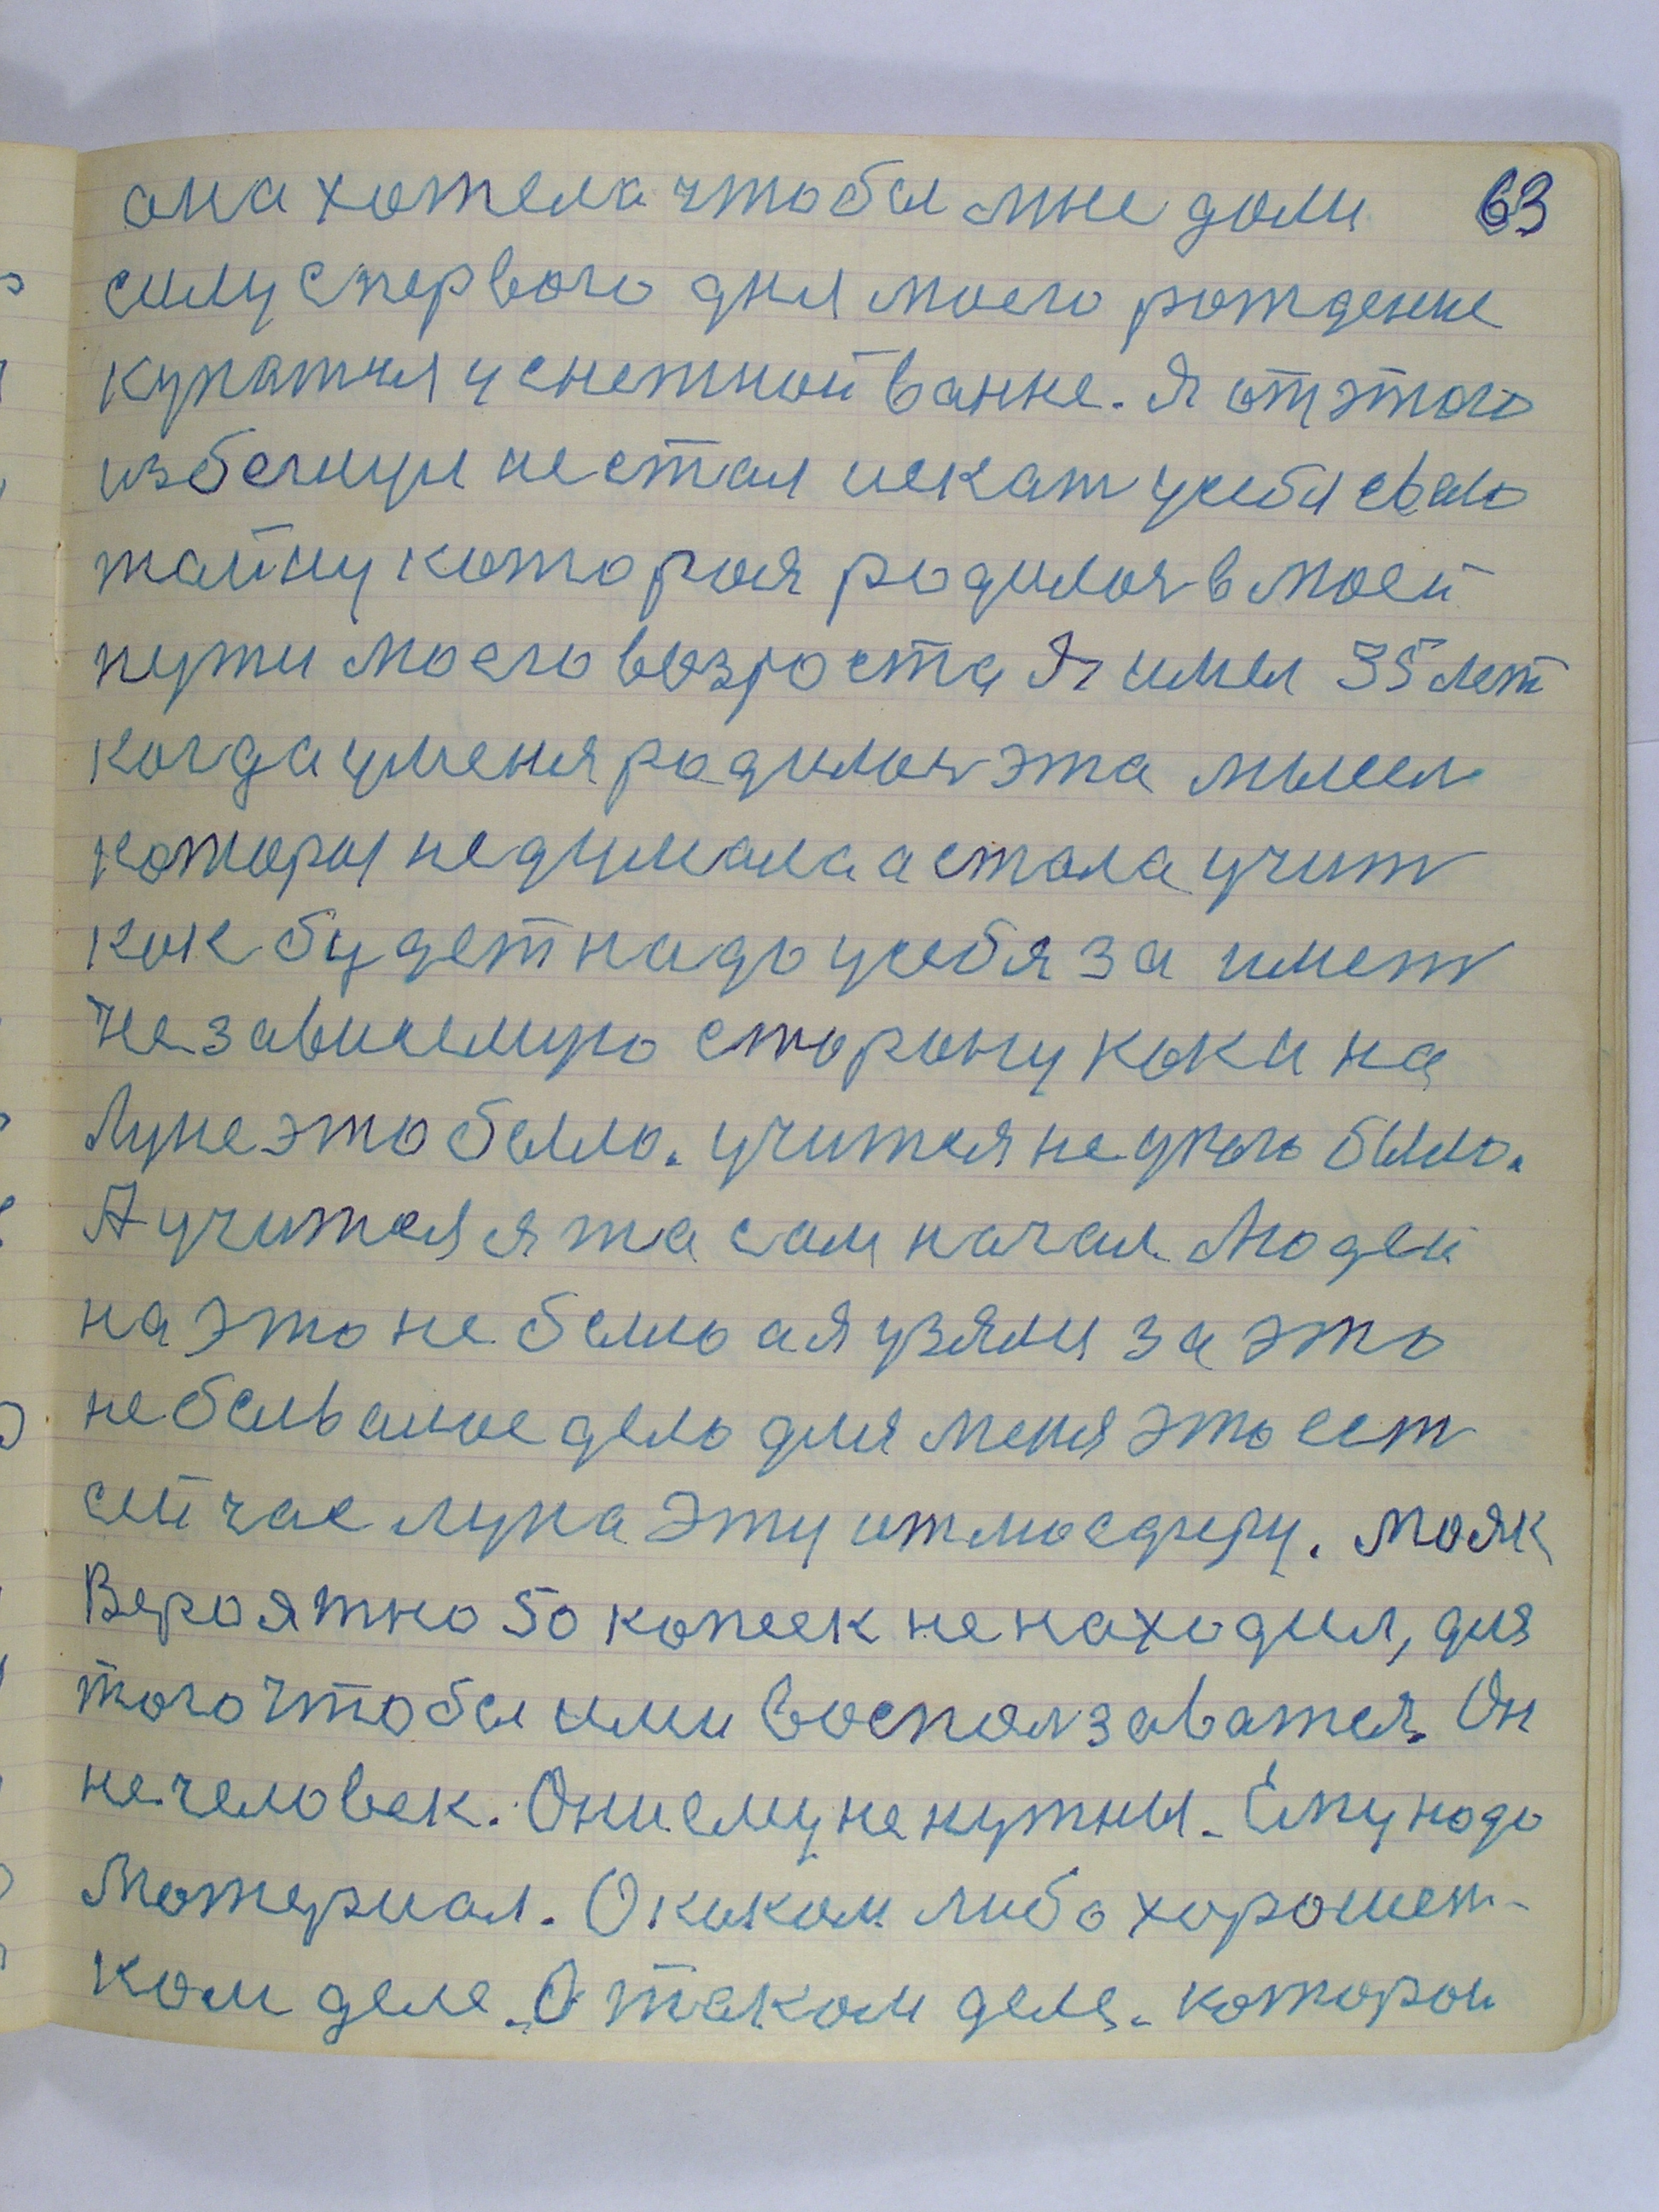 она хотела чтобы мне доли 63
силу с первого дня моего рождение
купатся у снежной ванне. Я от этого
избегнул не стал искат у себя свою
тайну которая родилоя в моей
пути моего возроста Я имел 35 лет
когда у меня родилоя эта мысел
которы не думала а стала учит
кок будет надо у себя за имет
независемую сторону как и на
Луне это было. учится не у кого было.
А учится я та сам начал Людей
на это не было а я узялы за это
небывалое дело для меня это ест
сейчас луна эту атмосферу. Мояк
Вероятно 50 копеек не находил, для
того чтобы ими восползаватся. Он
не человек. Они ему не нужны. Ему надо
Мотериал. О каком либо хорошень-
ком деле. О таком деле. которой